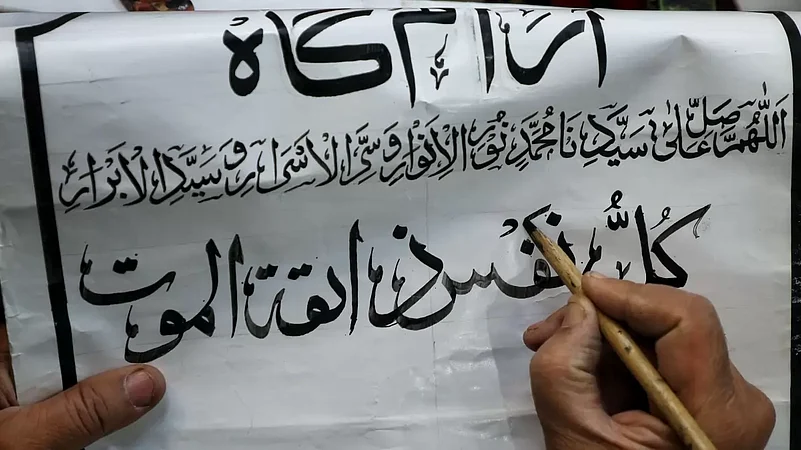 آرام گاہ
اَللّٰهُمَّ صَلِّ عَلٰی سَیِّدِنَا مُحَمَّدٍ نُوْرِ الْاَنْوَارِ وَ سِرِّ الْاَسْرَارِ وَ سَیِّدِ الْاَبْرَارِ
كُلُّ نَفْس ذائقة الموت